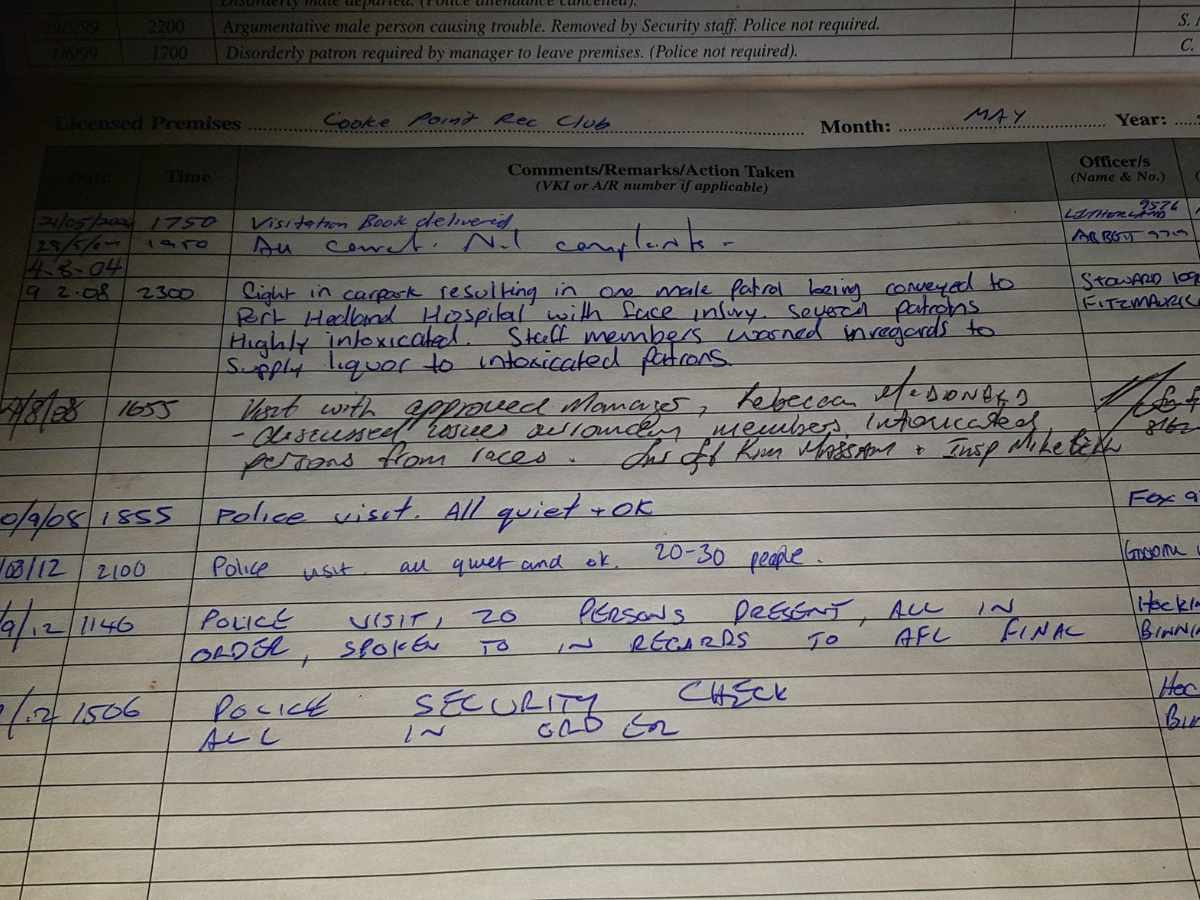 Disorderly male departed. (Police attendance cancelled).
2200 Argumentative male person causing trouble. Removed by Security staff. Police not required. S.
1700 Disorderly patron required by manager to leave premises. (Police not required). C.
Licensed Premises Cooke Point Rec Club Month: MAY Year:
Date Time Comments/Remarks/Action Taken Officer/s
(VKI or A/R number if applicable) (Name & No.)
1750 Visitation Book delivered 9576
1950 All correct. Nil complaints - ABBOTT
4-8-04
9 2.08 2300 Fight in carpark resulting in one male Patrol being conveyed to STOWARD
Port Hedland Hospital with face injury. Several patrons FITZMAURICE
Highly intoxicated. Staff members warned inregards to
Supply liquor to intoxicated patrons.
4/8/08 1655 Visit with approved Manager, Rebecca McDONALD
- discussed issues surrounding members, intoxicated 8162
persons from races. Kim MASSAM + Insp Mike
0/9/08 1855 Police visit. All quiet + OK Fox 9
/08/12 2100 Police visit. all quiet and ok. 20-30 people.
/9/12 1140 POLICE VISIT, 20 PERSONS PRESENT, ALL IN Hockin
ORDER, SPOKEN TO IN REGARDS TO AFL FINAL BINNIN
/12 1506 POLICE SECURITY CHECK Hoc
ALL IN ORDER Bin